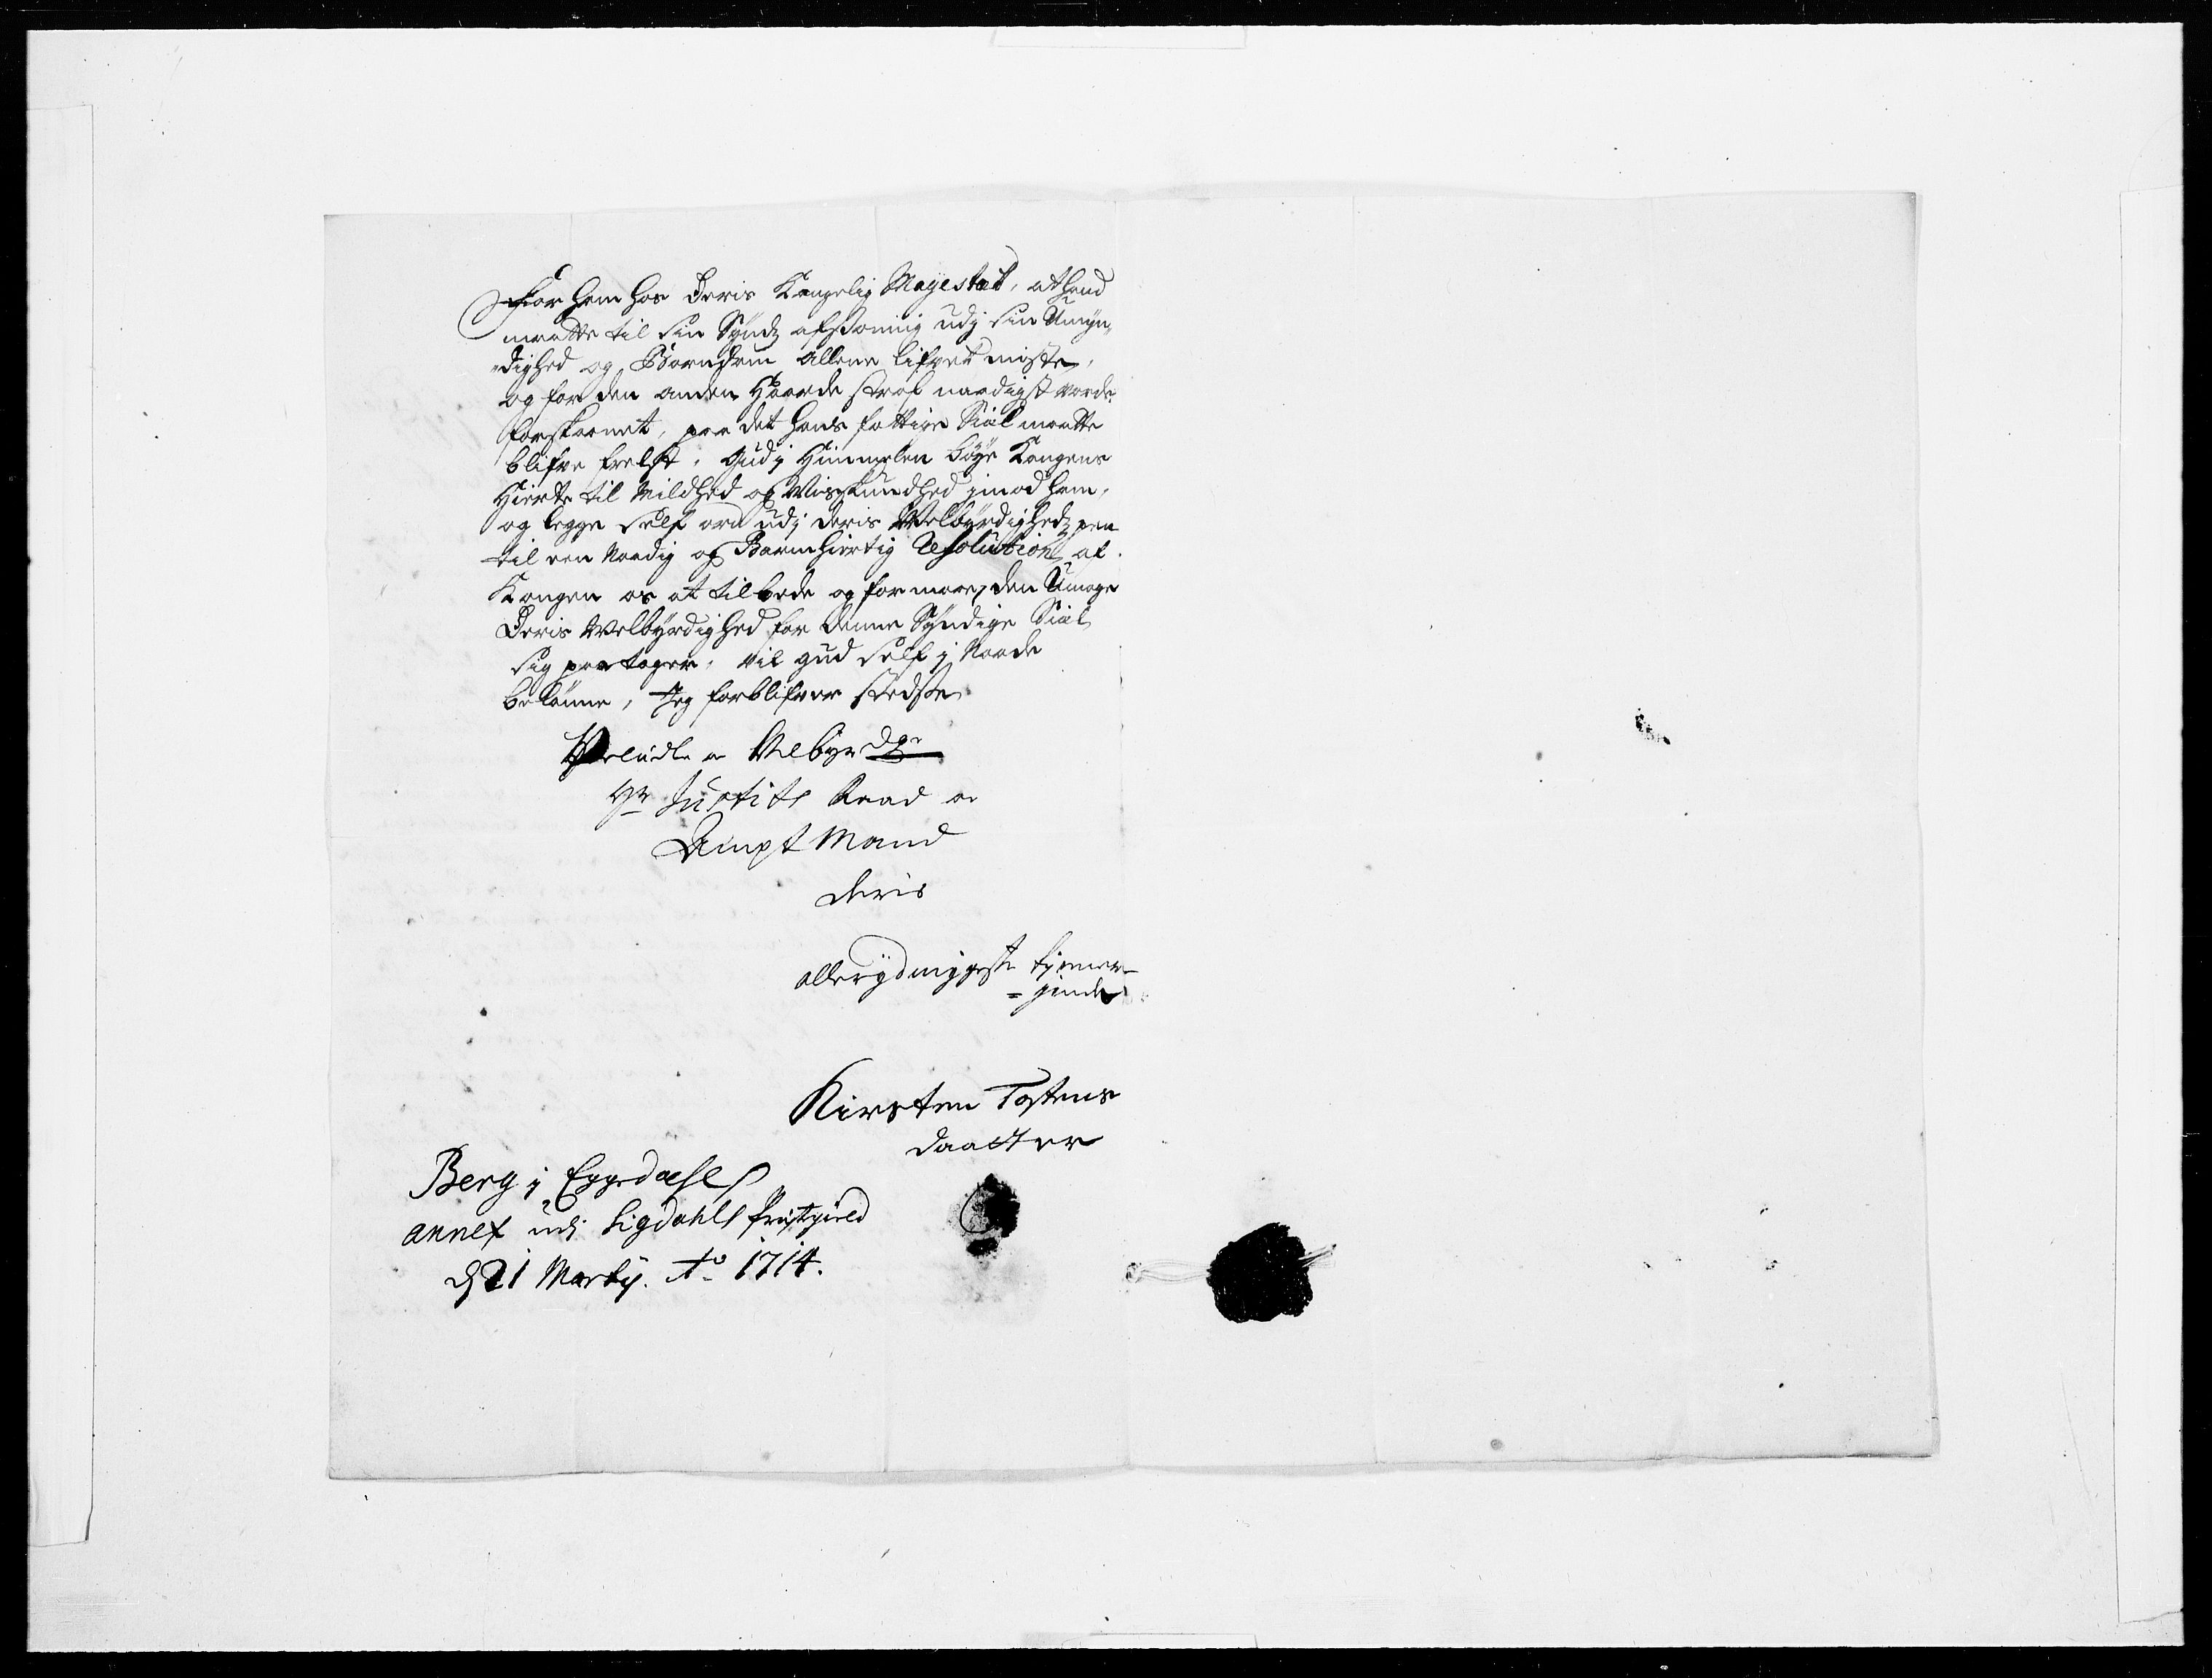 For ham hos Deris Kongelig Mayestæt, at hand
maatte til sin Synds afsoning udj sin Umyn„
„dighed og Barndom allene lifvet miste,
og for den anden Haarde straf naadigst vorde
forskaanet, paa det hans fattige Siæl maatte
blifve frelst. Gud j Himmelen bøye Kongens
Hierte til Mildhed og Miskundhed jmod ham,
og legge self ord udj deris Welbyrdigheds pen
til een Naadig og Barmhiertig Resolution af
Kongen os at tilbede og formaae, den Umage
Deris Welbyrdighed for denne Syndige Siæl
sig paatager, vil gud self j Naade
belønne, Jeg forblifver stedse
Welædle oc Velbyrdge
Hr Justits Raad oc
Ampt Mand
deris
allerydmygeste tjenner-
=jnde
Kirsten Tostens
daatter
Berg j Eggedahls
annex udj Sigdahls Præstegield
d 21 Marty. Ao 1714.